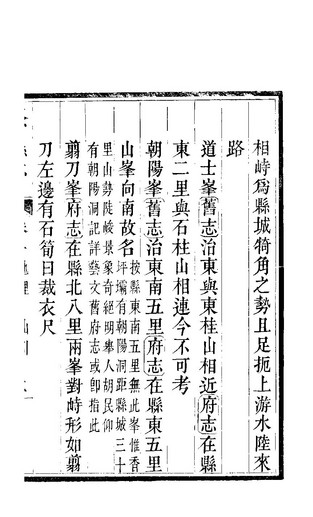 相峙爲縣城犄角之勢且足扼上游水陸來
路
道士峯舊志治東與東桂山相近府志在縣
東二里與石柱山相連今不可考
朝陽峯舊志治東南五里府志在縣東五里
山峯向南故名按縣東南五里無此峯惟香
坪壩有朝陽洞距縣城三十
里山勢陡峻景象奇絕明舉人胡民仰
有朝陽洞記詳藝文舊府志或卽指此
翦刀峯府志在縣北八里兩峯對峙形如翦
刀左邊有石筍曰裁衣尺